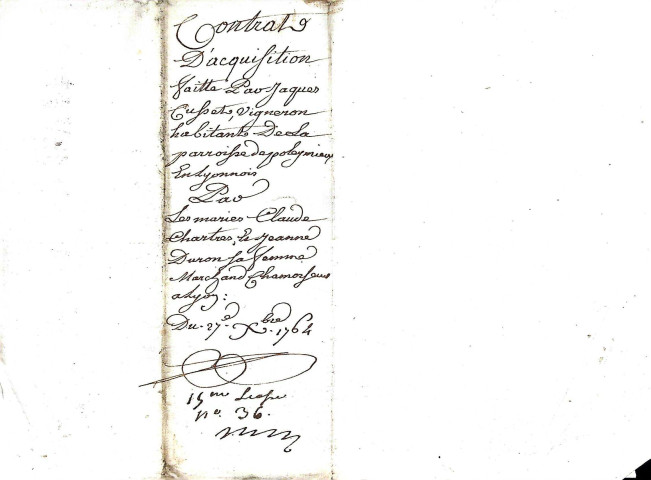 Contrat
D'acquisition
faitte Par Jaques
Cusset, vigneron
habitant De La
parroisse de poleymieux
En Lyonnois
Par
Les maries Claude
Chartres, Et Jeanne
Duron sa femme
Marchand Chamoiseur
a Lyon :
Du 27e Xbre 1764
15me
no. 36.